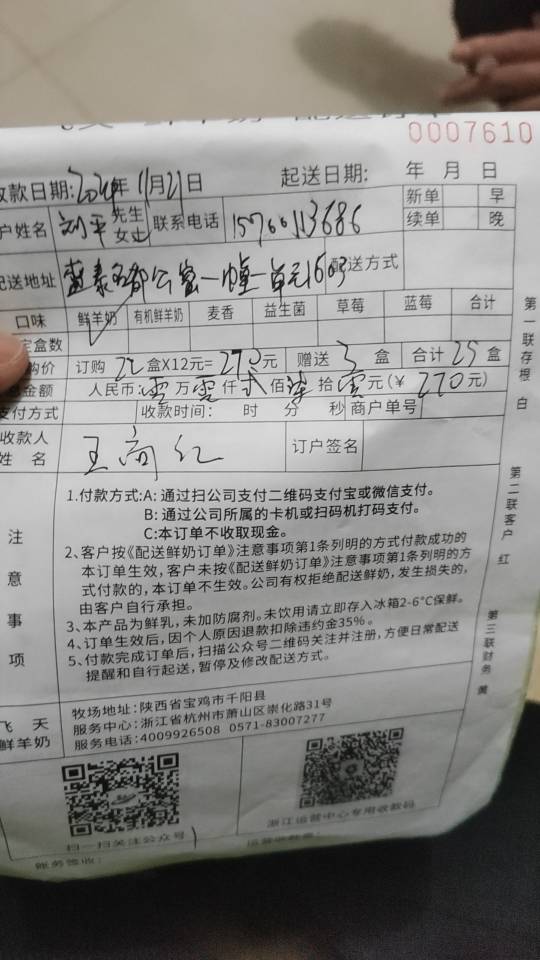 0007610
收款日期:2024年11月21日 起送日期: 年 月 日
新单 早
续单 晚
户姓名 刘平 先生 女士 联系电话 15700113686
配送地址 蓝泰名都公寓一幢一单元1603 配送方式
口味 鲜羊奶 有机鲜羊奶 麦香 益生菌 草莓 蓝莓 合计
定盒数
购价 订购 22 盒X12元= 270元 赠送 3 盒 合计 25 盒
金额 人民币:零万零仟贰佰柒拾零元(¥ 270元)
支付方式 收款时间: 时 分 秒 商户单号
收款人
姓 名 王商红 订户签名
注意事项
1.付款方式:A: 通过扫公司支付二维码支付宝或微信支付。
B: 通过公司所属的卡机或扫码机打码支付。
C:本订单不收取现金。
2、客户按《配送鲜奶订单》注意事项第1条列明的方式付款成功的
本订单生效,客户未按《配送鲜奶订单》注意事项第1条列明的方
式付款的,本订单不生效。公司有权拒绝配送鲜奶,发生损失的,
由客户自行承担。
3、本产品为鲜乳,未加防腐剂。未饮用请立即存入冰箱2-6°C保鲜。
4、订单生效后,因个人原因退款扣除违约金35%。
5、付款完成订单后,扫描公众号二维码关注并注册,方便日常配送
提醒和自行起送,暂停及修改配送方式。
飞 天
鲜羊奶
牧场地址:陕西省宝鸡市千阳县
服务中心:浙江省杭州市萧山区崇化路31号
服务电话:4009926508 0571-83007277
扫一扫关注公众号
浙江运营中心专用收款码
账务签收: 运营收款:
第一联存根 白
第二联客户 红
第三联财务 黄